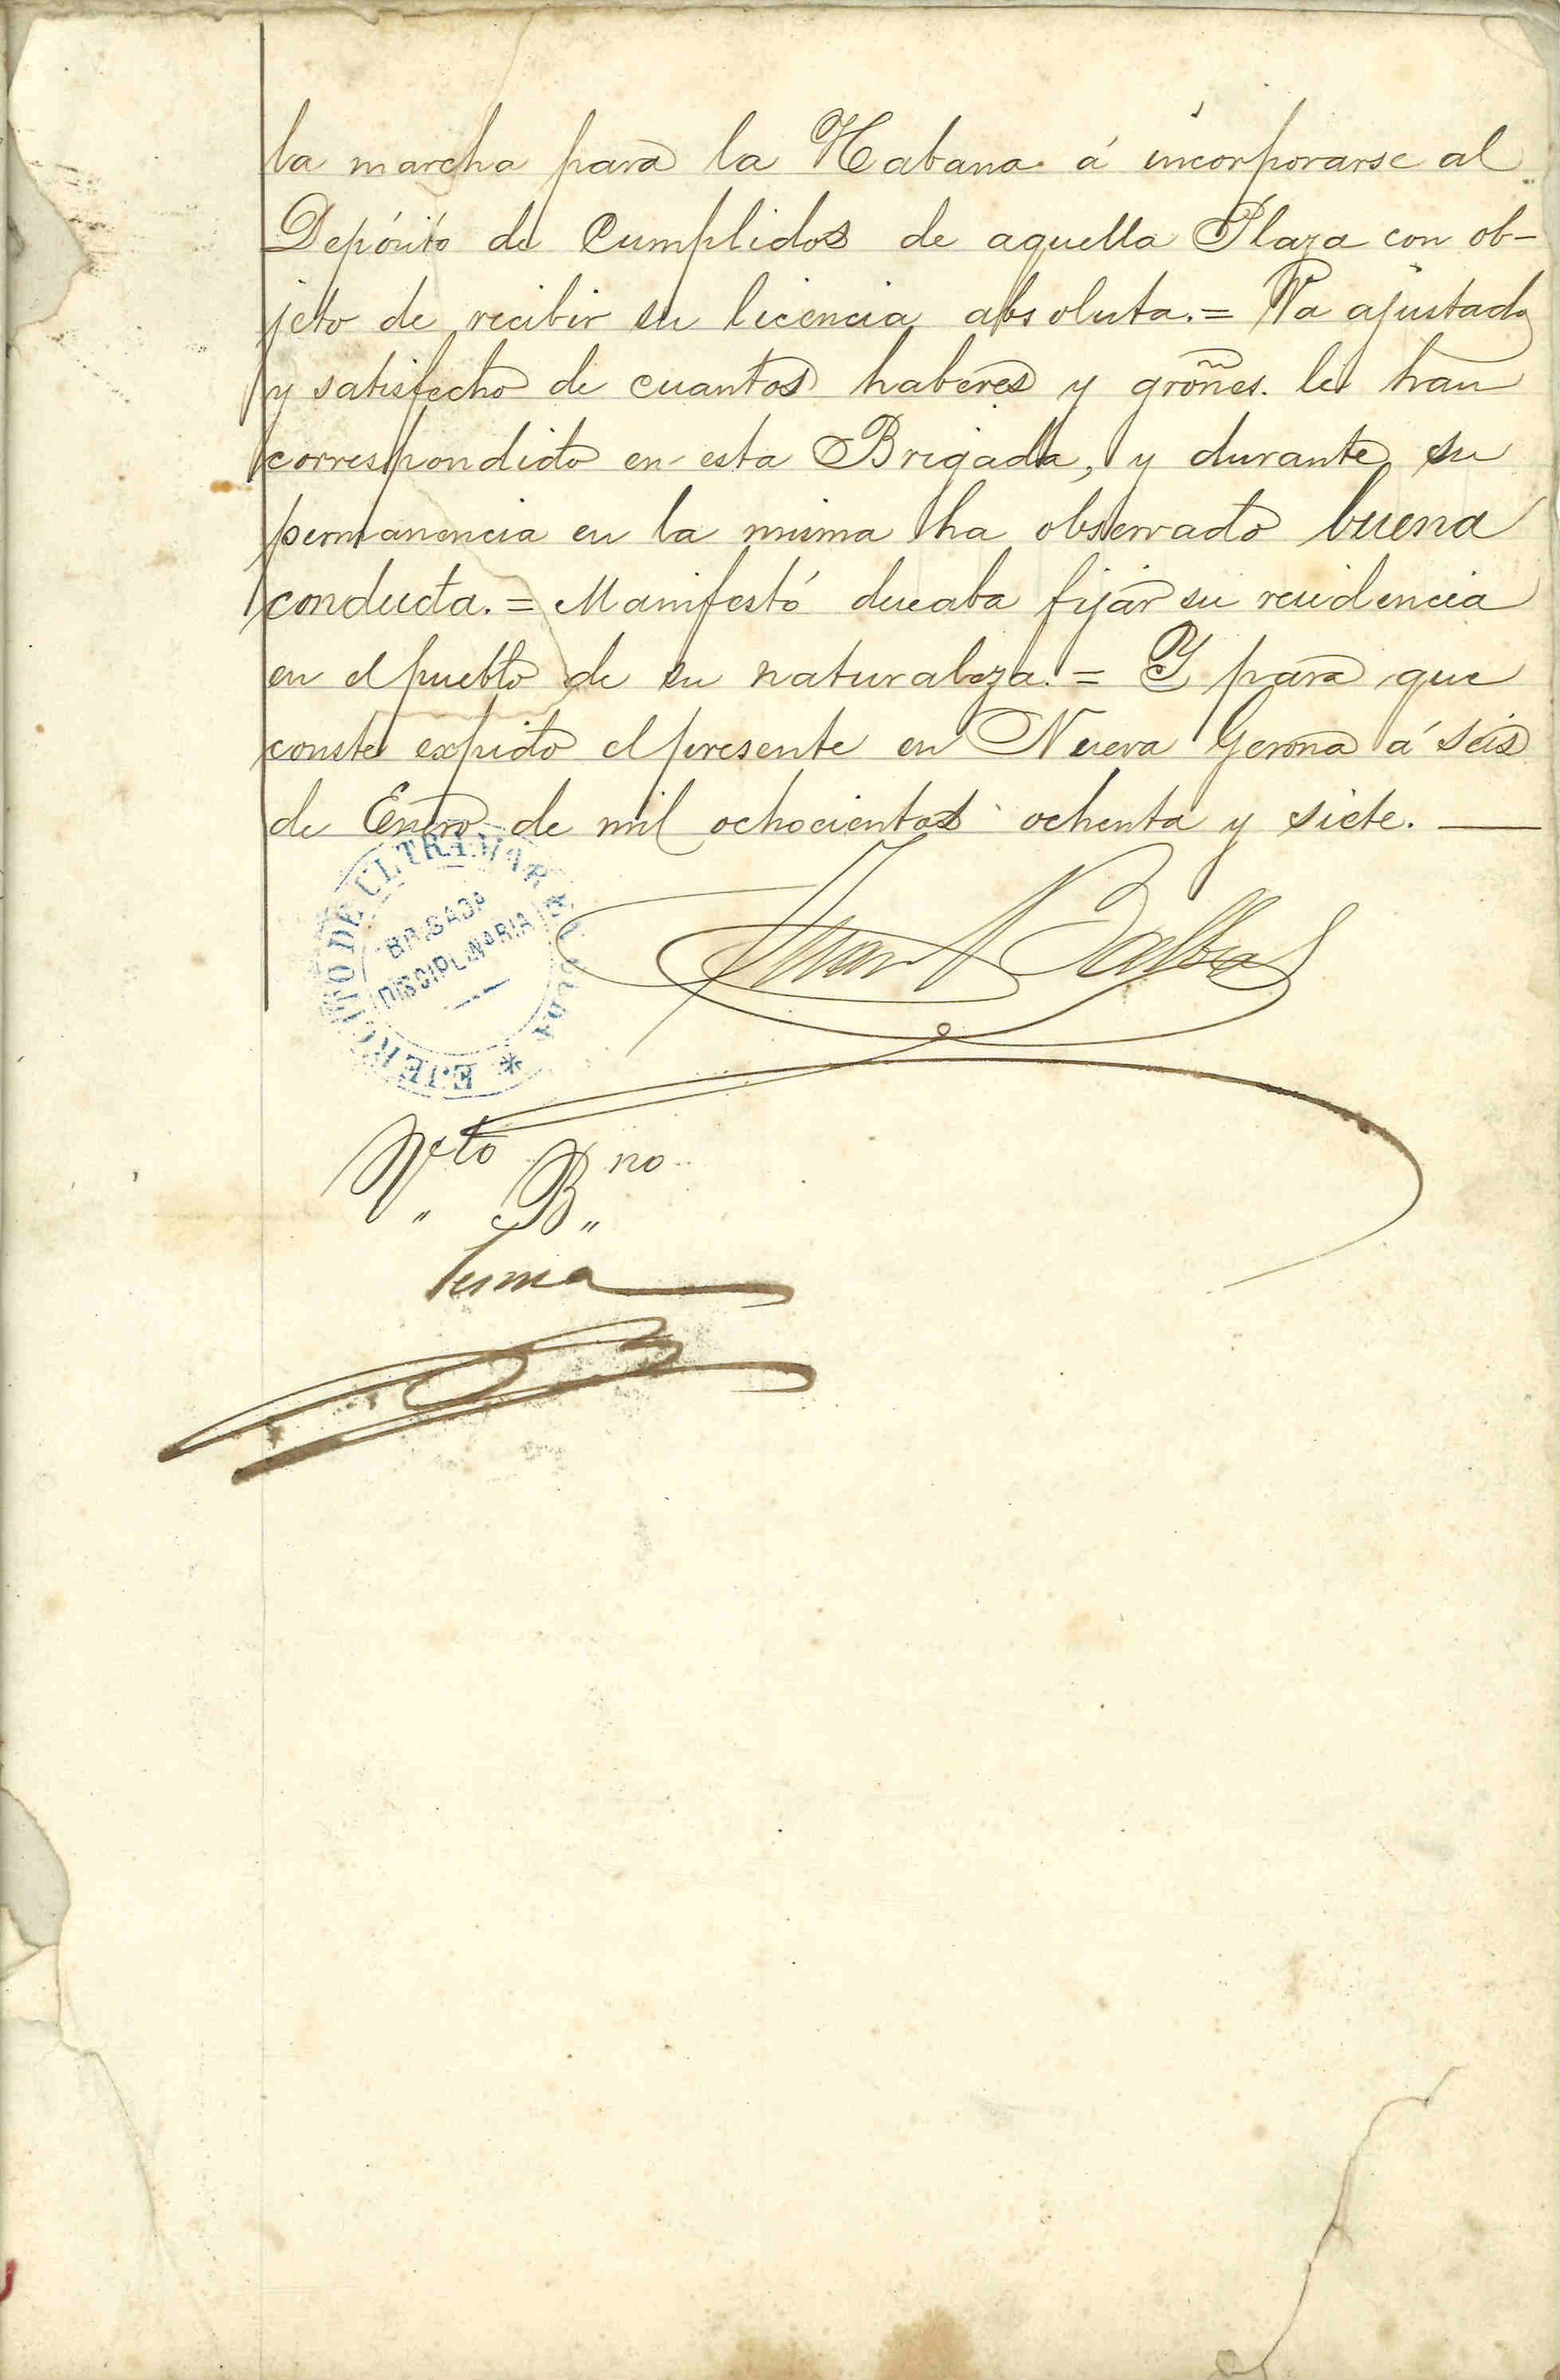 la marcha para la Habana á incorporarse al
Depósito de Cumplidos de aquella Plaza con ob-
jeto de recibir su licencia absoluta.= Va ajustado
y satisfecho de cuantos haberes y groñes. le han
correspondido en esta Brigada, y durante su
permanencia en la misma ha observado buena
conducta.= Manifestó deseaba fijar su residencia
en el pueblo de su naturaleza.= Y para que
conste expido el presente en Nueva Gerona á seis
de Enero de mil ochocientos ochenta y siete. —
EJERCITO DE ULTRAMAR * CUBA *
BRIGADA
DISCIPLINARIA
Juan N Balboa
Vto Bno